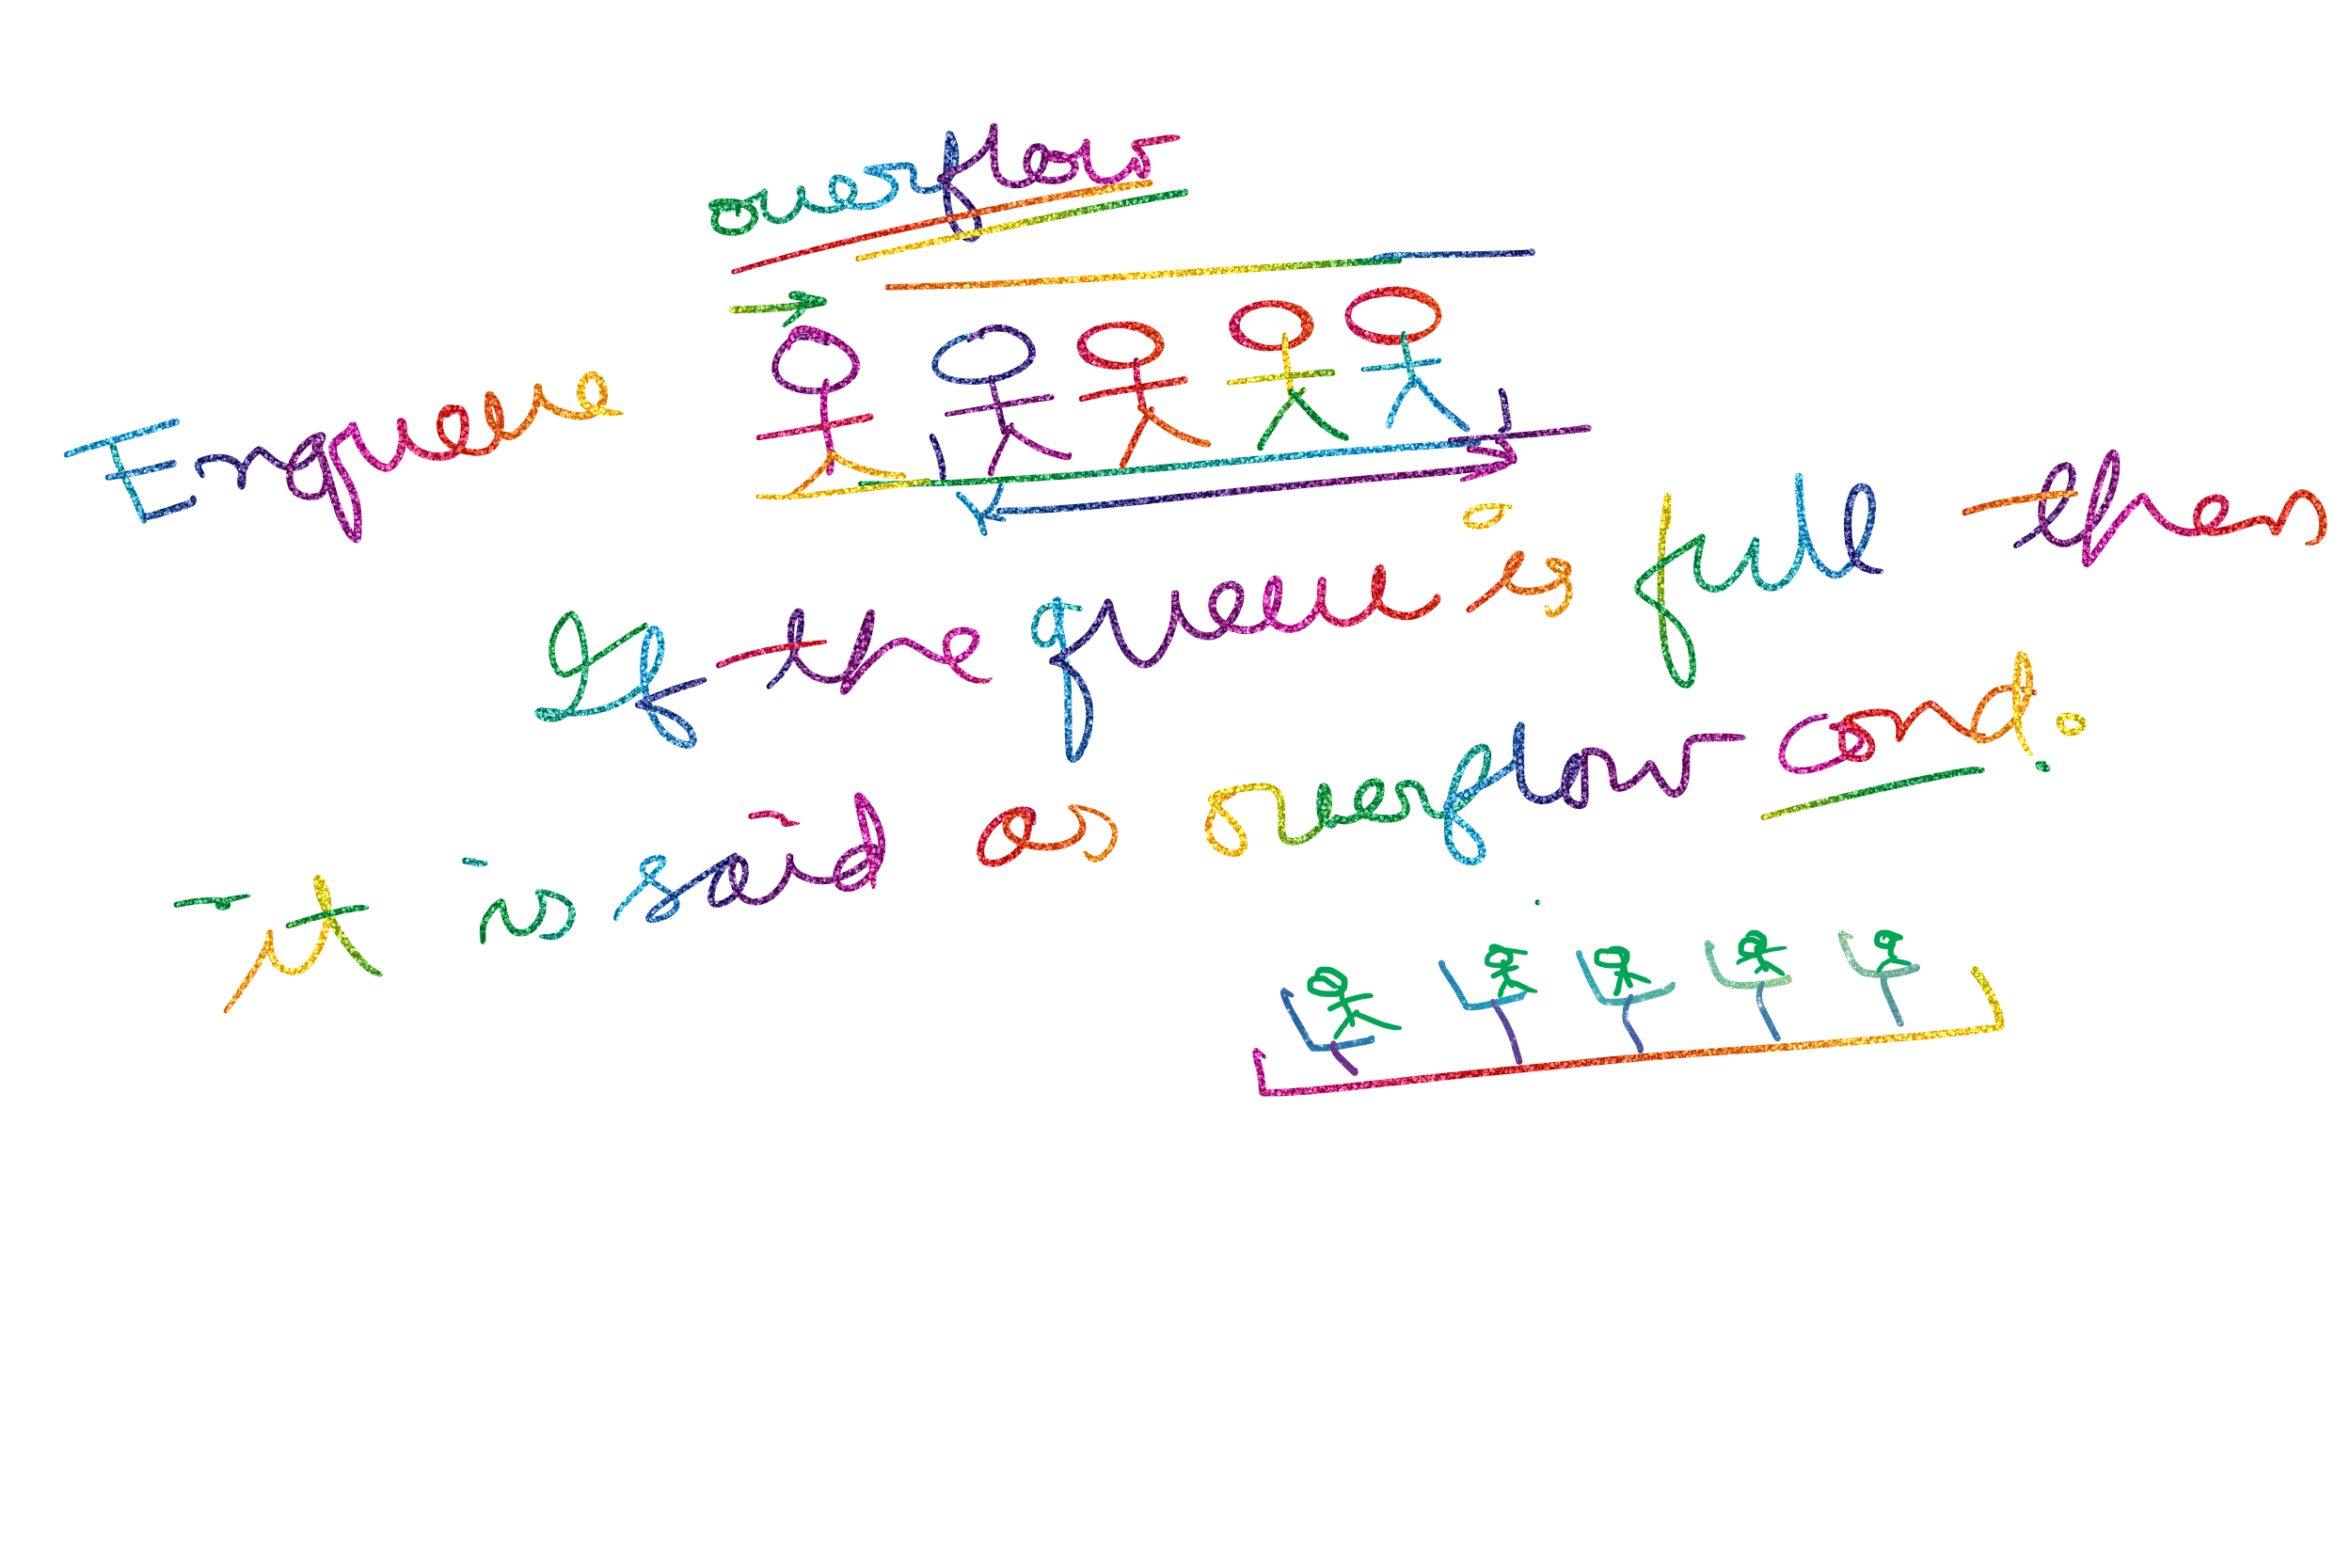 overflow
Enqueue
If the queue is full then
it is said as overflow cond.